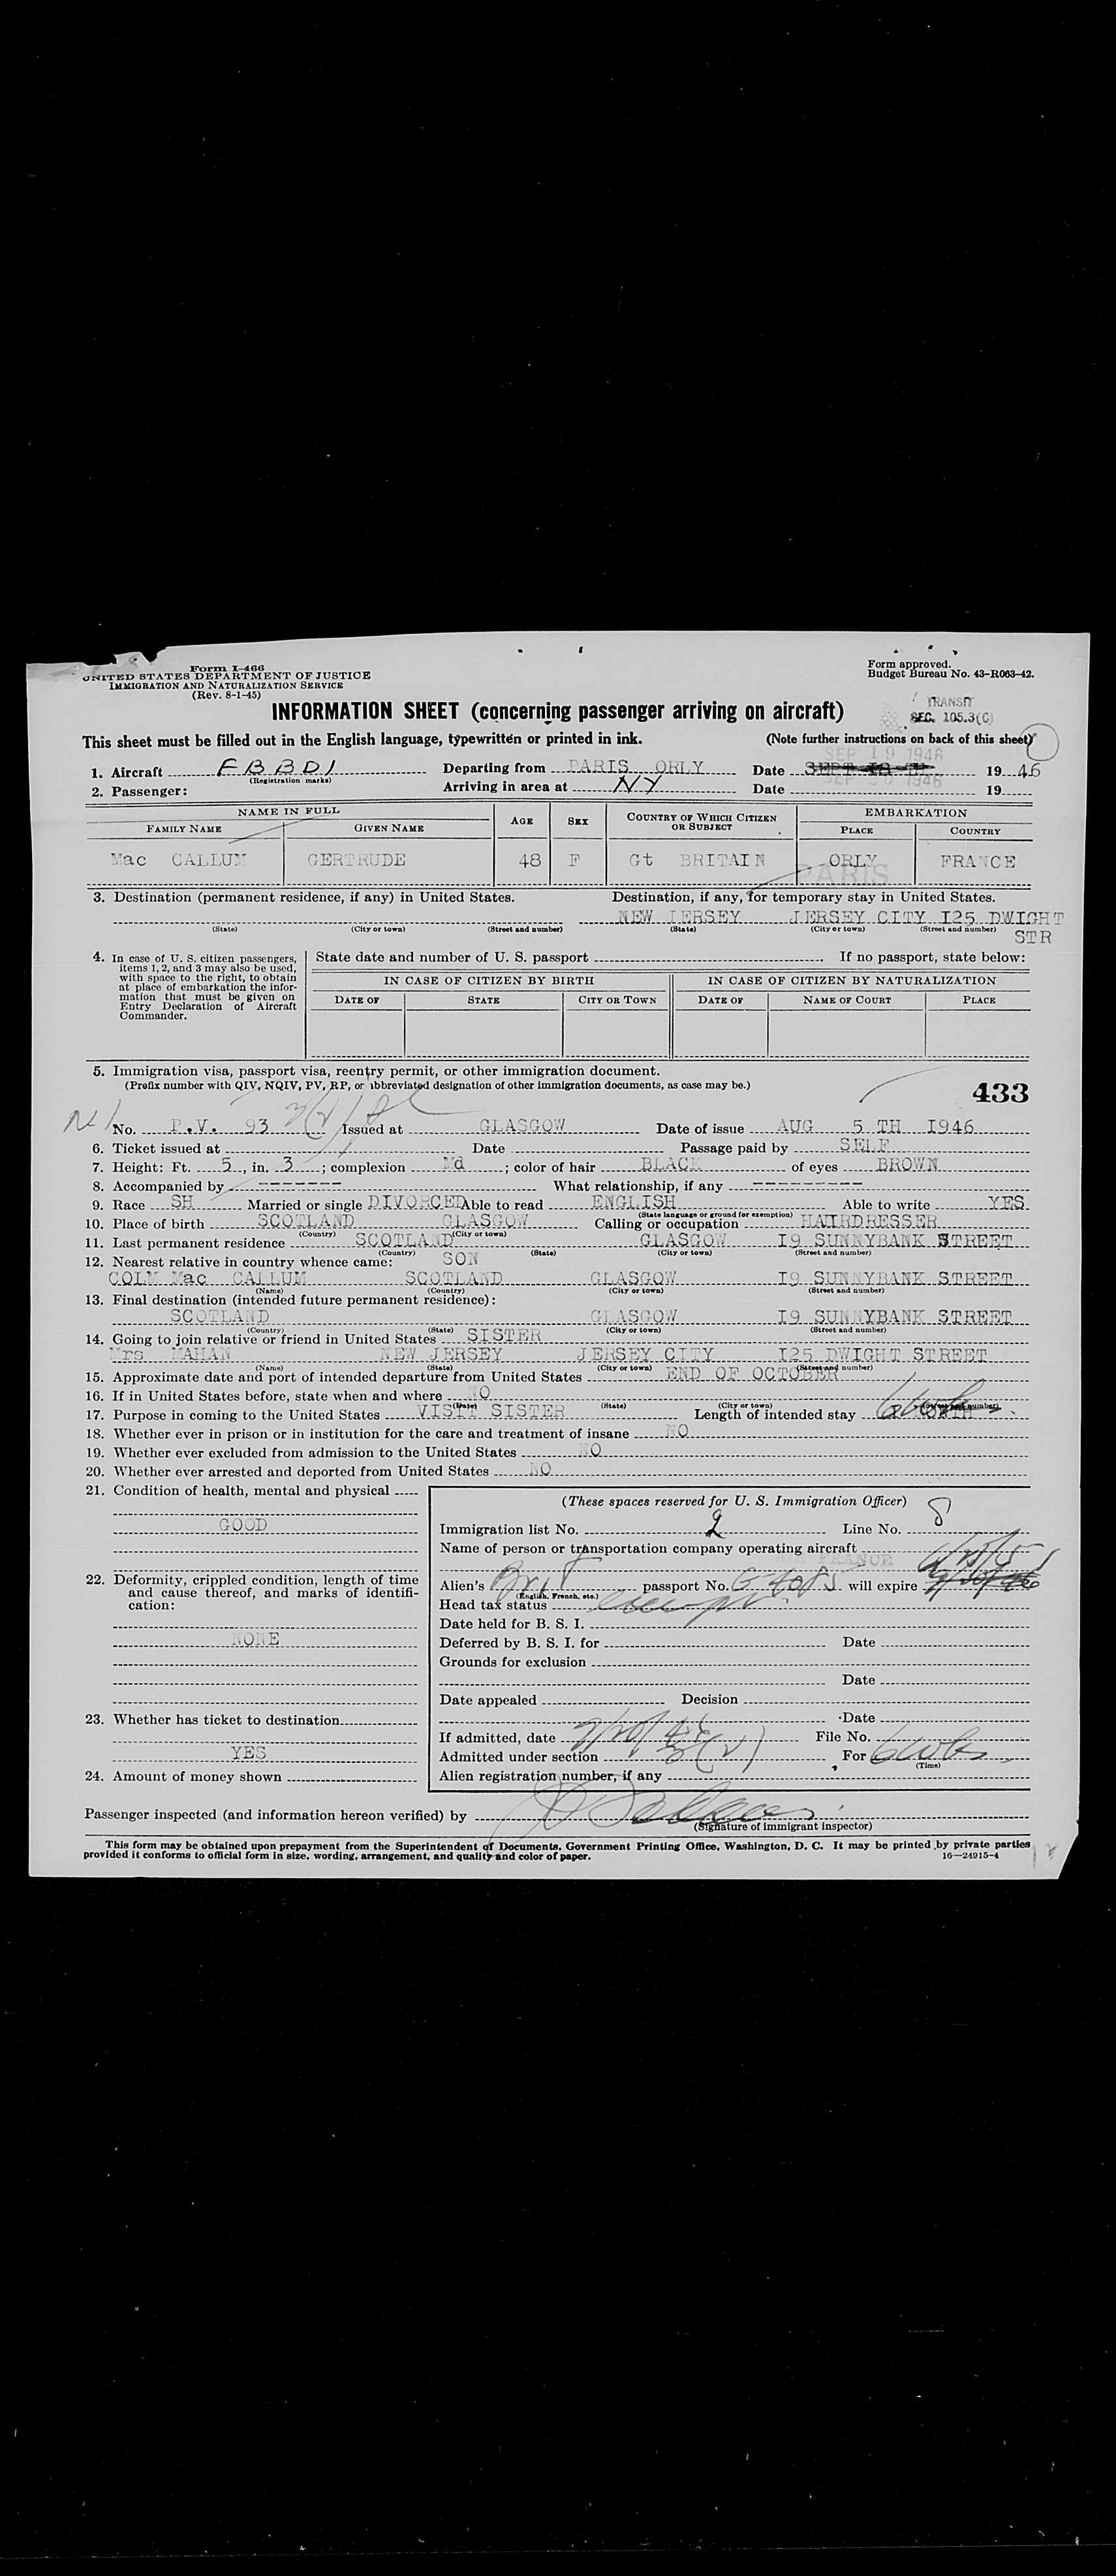 Form I-466
UNITED STATES DEPARTMENT OF JUSTICE
IMMIGRATION AND NATURALIZATION SERVICE
(Rev. 8-1-45)
Form approved.
Budget Bureau No. 43-R063-42.
TRANSIT
SEC. 105.3(C)
INFORMATION SHEET (concerning passenger arriving on aircraft)
This sheet must be filled out in the English language, typewritten or printed in ink. (Note further instructions on back of this sheet)
SEP 19 1946
1. Aircraft FBBDI Departing from PARIS ORLY Date SEPT 18 TH 1946
(Registration marks)
2. Passenger: Arriving in area at NY Date 1946 19
NAME IN FULL AGE SEX COUNTRY OF WHICH CITIZEN OR SUBJECT EMBARKATION
FAMILY NAME GIVEN NAME PLACE COUNTRY
Mac CALLUM GERTRUDE 48 F Gt BRITAIN ORLY FRANCE
PARIS
3. Destination (permanent residence, if any) in United States. Destination, if any, for temporary stay in United States.
NEW JERSEY JERSEY CITY I25 DWIGHT
(State) (City or town) (Street and number) (State) (City or town) (Street and number) STR
4. In case of U. S. citizen passengers, items 1, 2, and 3 may also be used, with space to the right, to obtain at place of embarkation the information that must be given on Entry Declaration of Aircraft Commander.
State date and number of U. S. passport If no passport, state below:
IN CASE OF CITIZEN BY BIRTH IN CASE OF CITIZEN BY NATURALIZATION
DATE OF STATE CITY OR TOWN DATE OF NAME OF COURT PLACE
5. Immigration visa, passport visa, reentry permit, or other immigration document.
(Prefix number with QIV, NQIV, PV, RP, or abbreviated designation of other immigration documents, as case may be.)
433
No. P.V. 93 Issued at GLASGOW Date of issue AUG 5 TH I946
6. Ticket issued at Date Passage paid by SELF
7. Height: Ft. 5, in. 3; complexion Md; color of hair BLACK of eyes BROWN
8. Accompanied by -------- What relationship, if any ----------
9. Race SH Married or single DIVORCED Able to read ENGLISH Able to write YES
(State language or ground for exemption)
10. Place of birth SCOTLAND GLASGOW Calling or occupation HAIRDRESSER
(Country) (City or town)
11. Last permanent residence SCOTLAND GLASGOW I9 SUNNYBANK STREET
(Country) (State) (City or town) (Street and number)
12. Nearest relative in country whence came: SON
COLM Mac CALLUM SCOTLAND GLASGOW I9 SUNNYBANK STREET
(Name) (Country) (City or town) (Street and number)
13. Final destination (intended future permanent residence):
SCOTLAND GLASGOW I9 SUNNYBANK STREET
(Country) (State) (City or town) (Street and number)
14. Going to join relative or friend in United States SISTER
Mrs MAHAN NEW JERSEY JERSEY CITY I25 DWIGHT STREET
(Name) (State) (City or town) (Street and number)
15. Approximate date and port of intended departure from United States END OF OCTOBER
16. If in United States before, state when and where NO
(Date) (State) (City or town) (Street and number)
17. Purpose in coming to the United States VISIT SISTER Length of intended stay 6 wks
18. Whether ever in prison or in institution for the care and treatment of insane NO
19. Whether ever excluded from admission to the United States NO
20. Whether ever arrested and deported from United States NO
21. Condition of health, mental and physical
GOOD
22. Deformity, crippled condition, length of time and cause thereof, and marks of identification:
NONE
23. Whether has ticket to destination
YES
24. Amount of money shown
(These spaces reserved for U. S. Immigration Officer)
Immigration list No. 2 Line No. 8
Name of person or transportation company operating aircraft
AIR FRANCE
Alien's Brit passport No. will expire
(English, French, etc.)
Head tax status exempt
Date held for B. S. I.
Deferred by B. S. I. for Date
Grounds for exclusion
Date
Date appealed Decision
Date
If admitted, date 9/20/46 File No.
Admitted under section 3(2) For 6 wks
(Time)
Alien registration number, if any
Passenger inspected (and information hereon verified) by
(Signature of immigrant inspector)
This form may be obtained upon prepayment from the Superintendent of Documents, Government Printing Office, Washington, D. C. It may be printed by private parties
provided it conforms to official form in size, wording, arrangement, and quality and color of paper. 16—24915-4